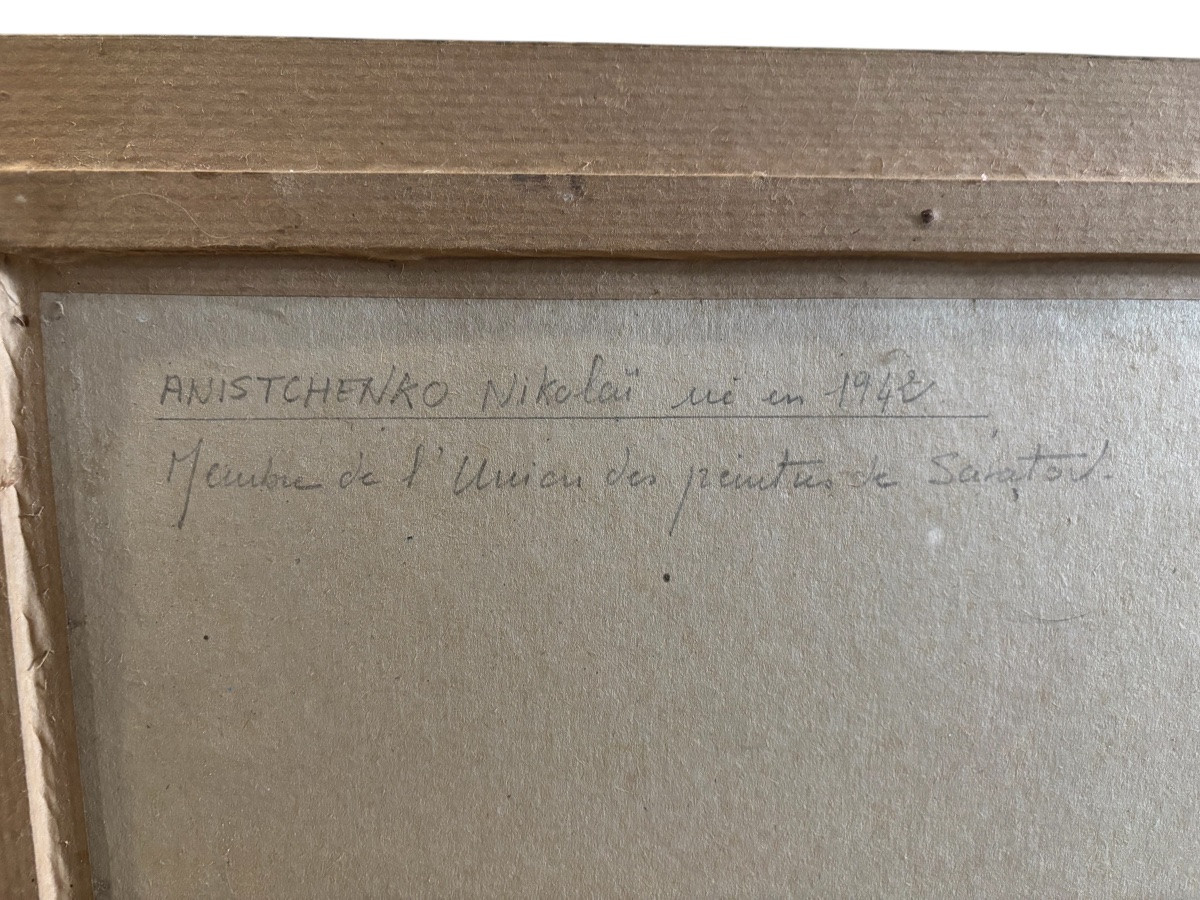 ANISTCHENKO Nikolaï né en 1942
Membre de l'Union des peintres de Saratov.